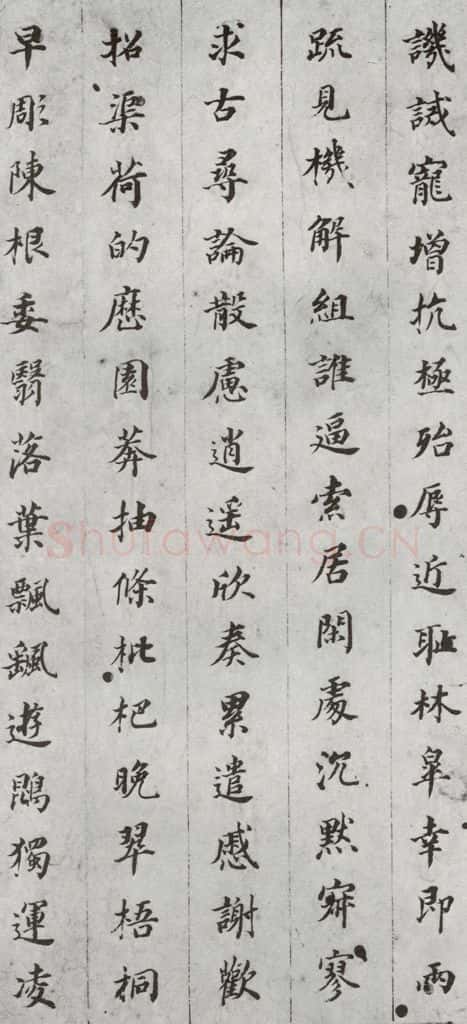 譏誡寵增抗極殆辱近耻林皐幸即兩
疏見機解組誰逼索居閑處沉默寂寥
求古尋論散慮逍遥欣奏累遣慼謝歡
招渠荷的歷園莽抽條枇杷晚翠梧桐
早彫陳根委翳落葉飄颻遊鵾獨運凌
Shufawang.CN